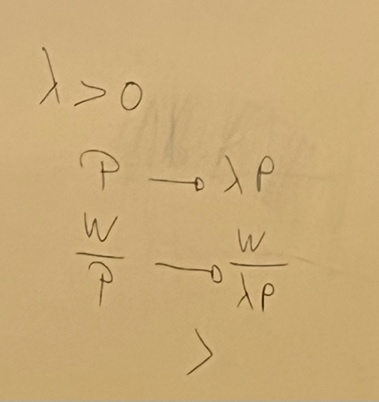 λ > 0
P → λP
W/P → W/λP
>